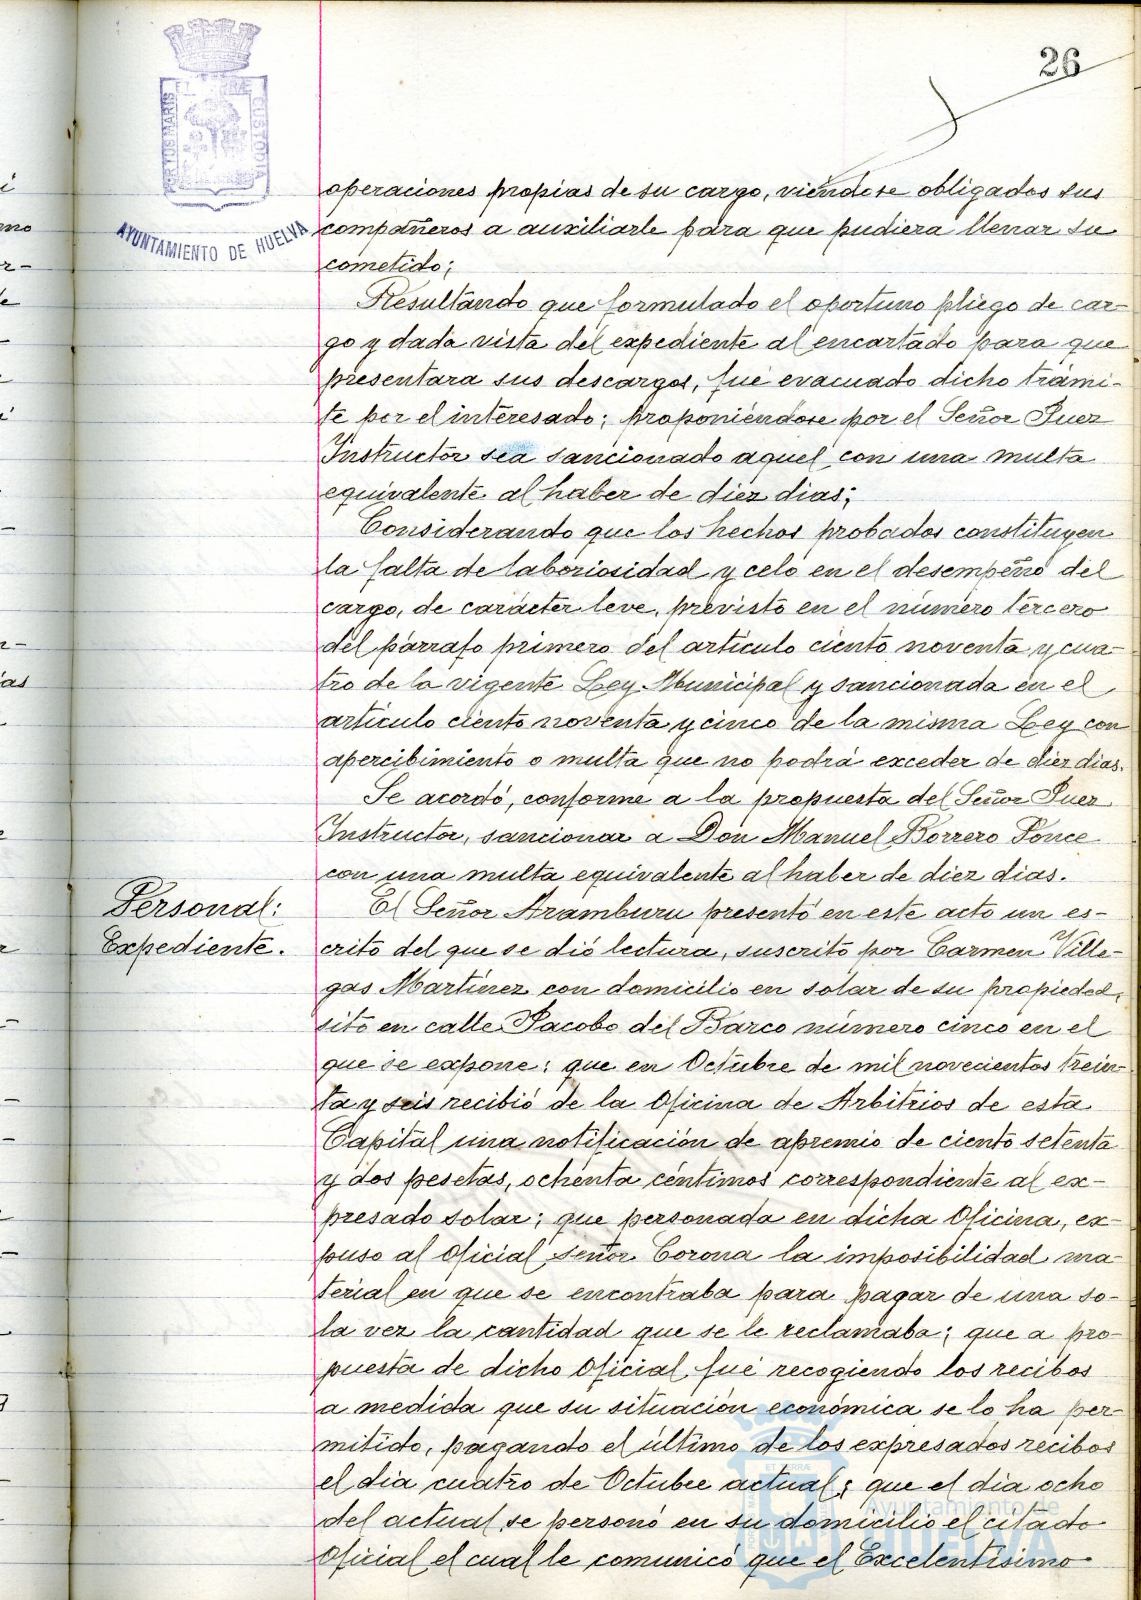 26
PORTUS MARIS ET TERRÆ CUSTODIA
AYUNTAMIENTO DE HUELVA
operaciones propias de su cargo, viéndose obligados sus
compañeros a auxiliarle para que pudiera llenar su
cometido;
Resultando que formulado el oportuno pliego de car-
go y dada vista del expediente al encartado para que
presentara sus descargos, fué evacuado dicho trámi-
te por el interesado; proponiéndose por el Señor Juez
Instructor sea sancionado aquel con una multa
equivalente al haber de diez dias;
Considerando que los hechos probados constituyen
la falta de laboriosidad y celo en el desempeño del
cargo, de carácter leve, previsto en el número tercero
del párrafo primero del artículo ciento noventa y cua-
tro de la vigente Ley Municipal y sancionada en el
artículo ciento noventa y cinco de la misma Ley con
apercibimiento o multa que no podrá exceder de diez dias.
Se acordó, conforme a la propuesta del Señor Juez
Instructor, sancionar a Don Manuel Borrero Ponce
con una multa equivalente al haber de diez dias.
Personal:
Expediente.
El Señor Aramburu presentó en este acto un es-
crito del que se dió lectura, suscrito por Carmen Ville-
gas Martínez con domicilio en solar de su propiedad,
sito en calle Jacobo del Barco número cinco en el
que se expone: que en Octubre de mil novecientos trein-
ta y seis recibió de la Oficina de Arbitrios de esta
Capital una notificación de apremio de ciento setenta
y dos pesetas, ochenta céntimos correspondiente al ex-
presado solar; que personada en dicha Oficina, ex-
puso al Oficial señor Corona la imposibilidad ma-
terial en que se encontraba para pagar de una so-
la vez la cantidad que se le reclamaba; que a pro-
puesta de dicho Oficial fué recogiendo los recibos
a medida que su situación económica se lo ha per-
mitido, pagando el último de los expresados recibos
el dia cuatro de Octubre actual; que el dia ocho
del actual se personó en su domicilio el citado
Oficial el cual le comunicó que el Excelentísimo
Ayuntamiento de
HUELVA